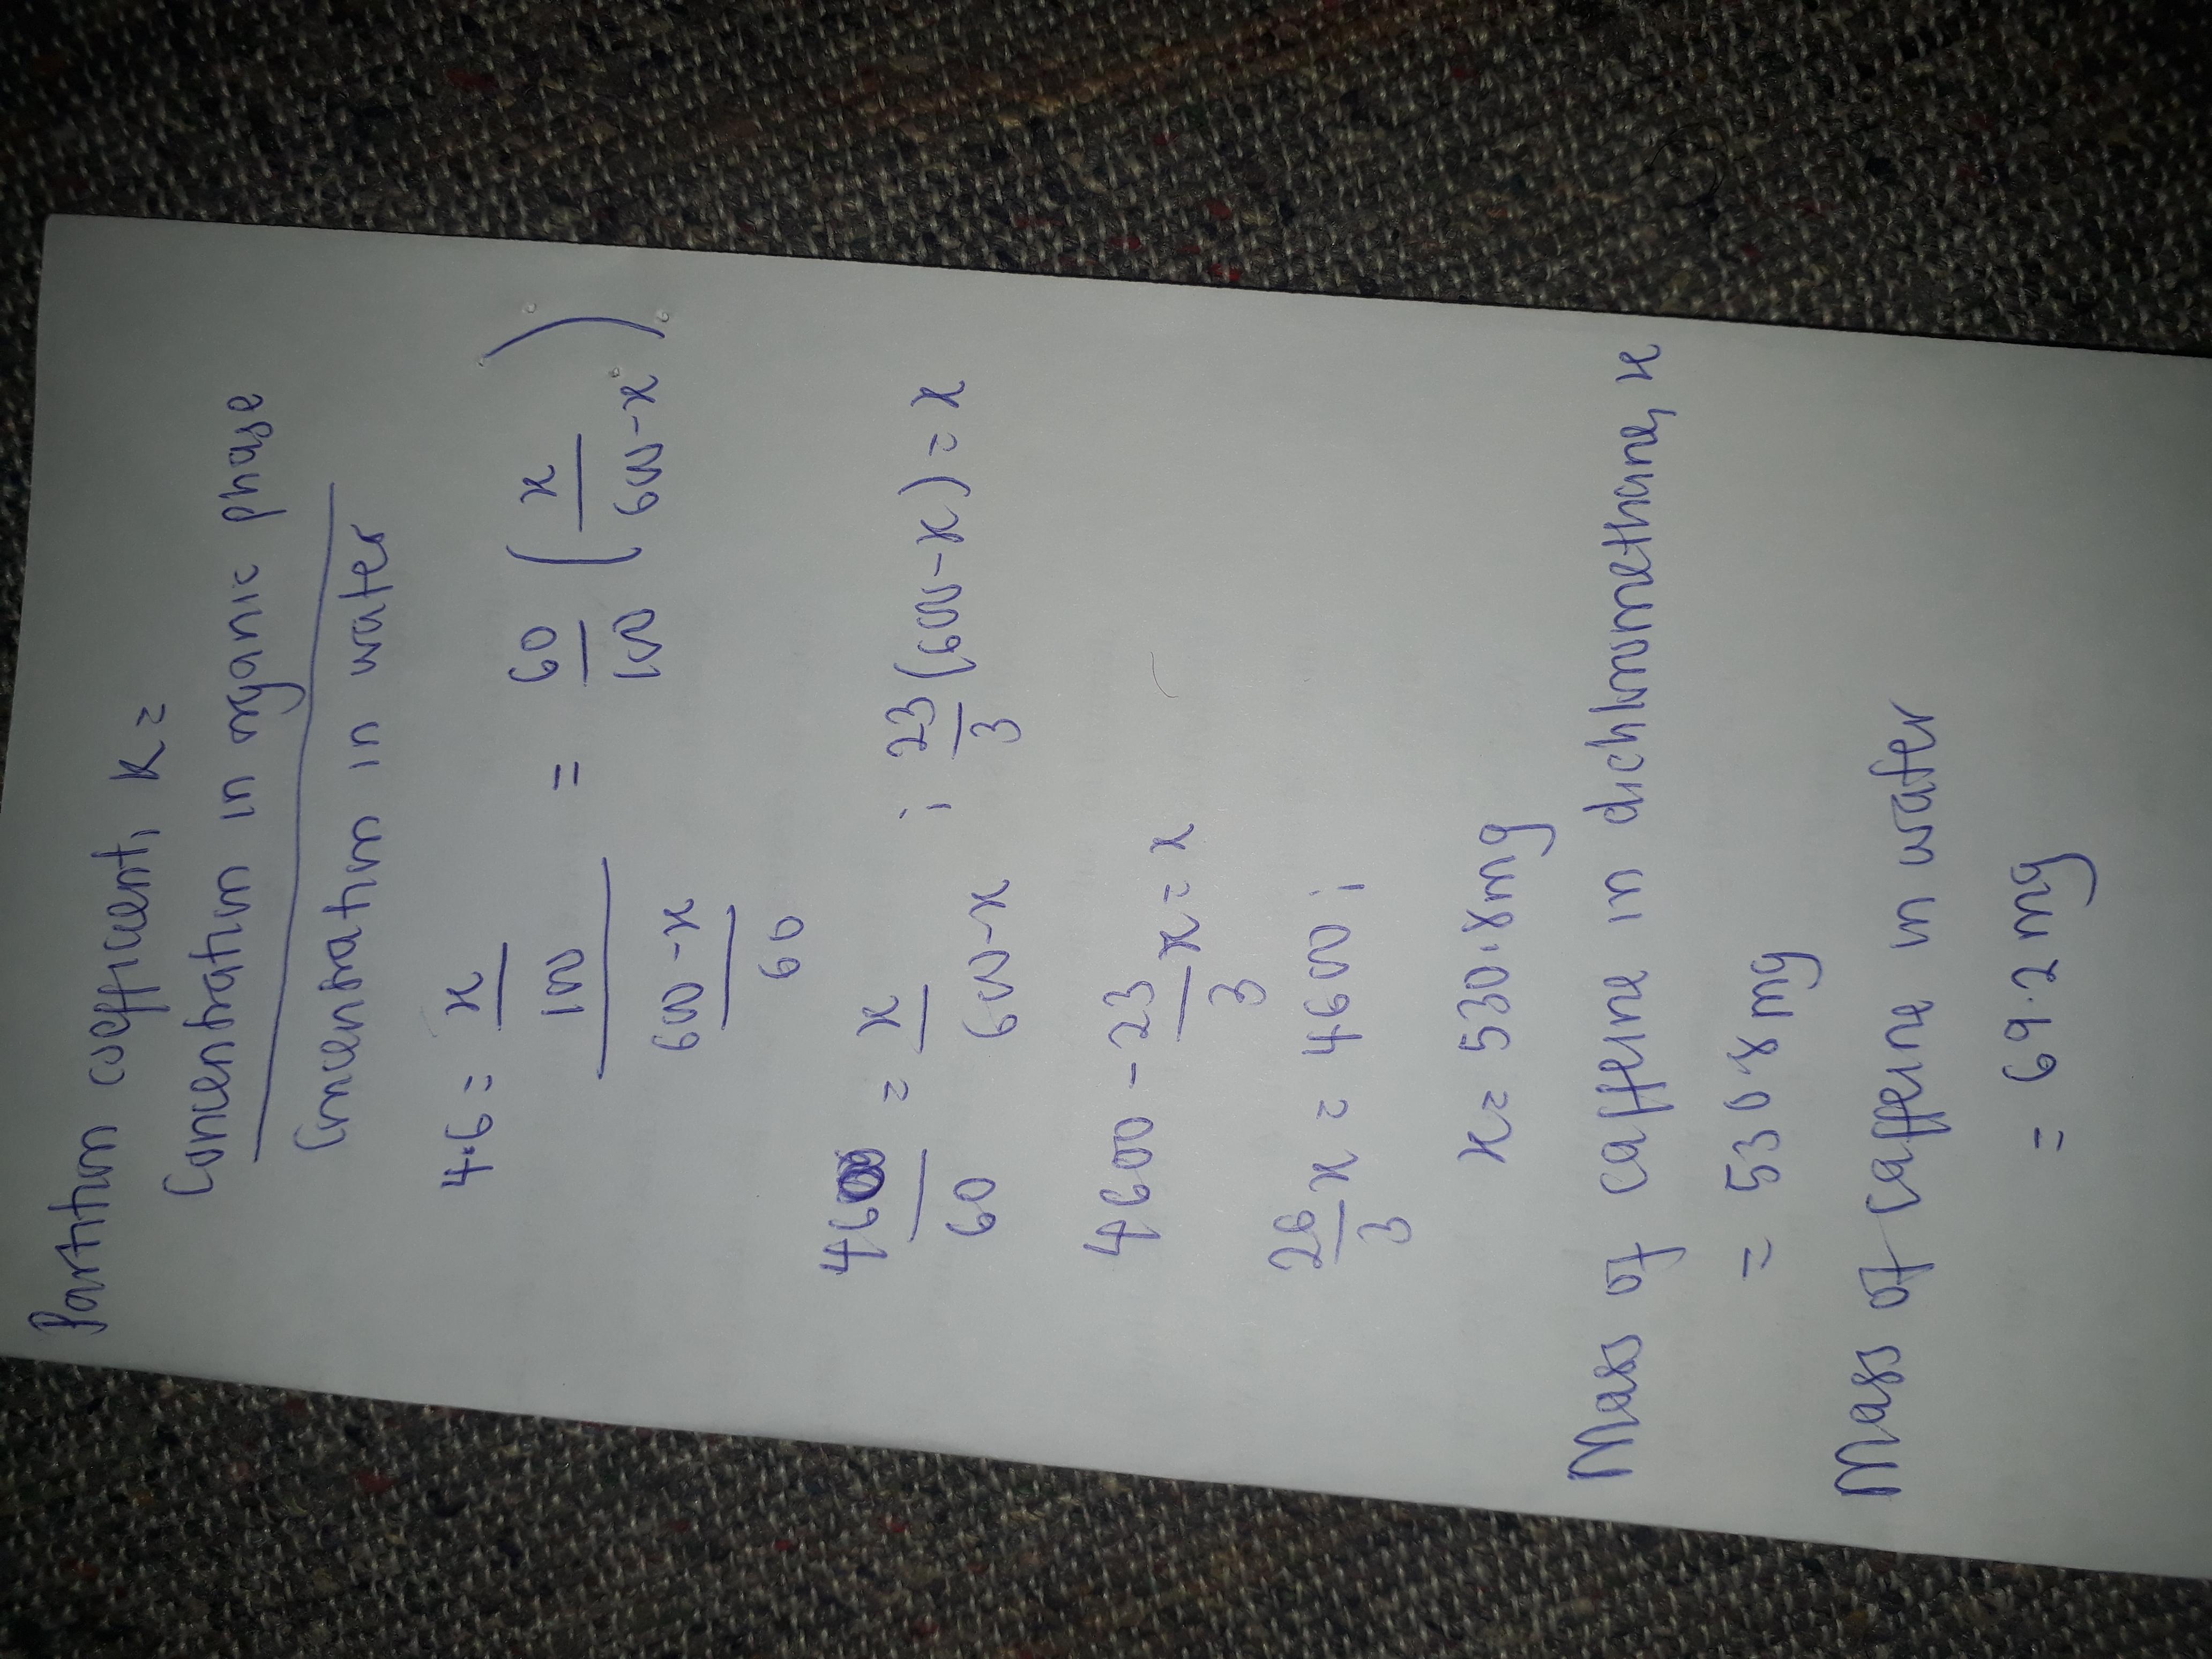 Partition coefficient, K =
Concentration in organic phase
Concentration in water
4.6 = x/100 / (600-x)/60 = 60/100 (x/600-x)
460/60 = x/600-x ; 23/3 (600-x) = x
4600 - 23/3 x = x
26/3 x = 4600 ;
x = 530.8mg
Mass of caffeine in dichloromethane, x
= 530.8 mg
Mass of caffeine in water
= 69.2 mg